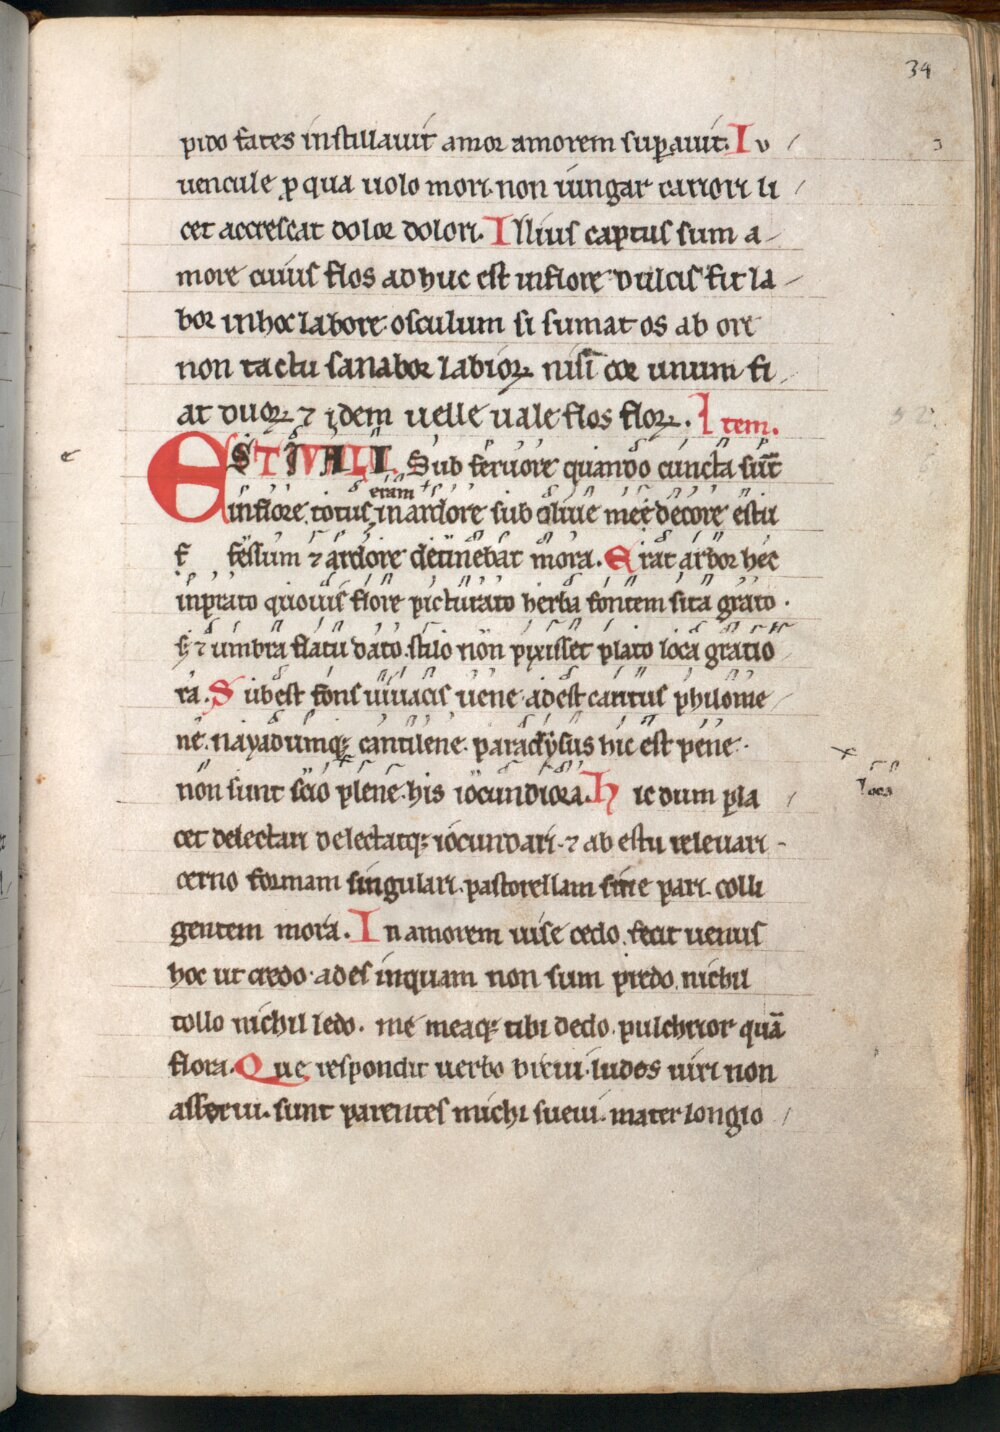 34
pido fates instillavit amor amorem sup̲auit. Iv
uencule p̲ qua uolo mori. non iungar cariori li
cet accrescat dolor dolori. Illius captus sum a
more cuius flos adhuc est inflore. dulcis fit la
bor inhoc labore. osculum si sumat os ab ore
non tactu sanabor labioꝝ nisī cor unum fi
at duoꝝ ⁊ idem uelle. uale flos floꝝ. Item.
ESTIVALI Sub feruore quando cuncta sūt
eram
inflore. totus inardore sub oliue mee decore estu
f fessum ⁊ ardore detinebat mora. Erat arbor hec
inprato quouis flore picturato herba fontem situ grato.
⁊ umbra flatu dato. stilo non pixisset plato loca gratio
ra. Subest fons uiuacis uene. adest cantus philome
ne. nayadumqꝫ cantilene. paradysus hic est pene.
loca
non sunt scio plene. his iocundiora. hic dum pla
cet delectari delectatqꝫ iocundari. ⁊ ab estu releuari
cerno formam singulari. pastorellam sine pari. colli
gentem mora. In amorem uise cedo. fecit uenus
hoc ut credo. ades inquam non sum predo. nichil
tollo nichil ledo. me meaqꝫ tibi dedo. pulchrior quā
flora. Que respondit uerbo breui. ludos uiri non
assueui. sunt parentes michi sueui. mater longio